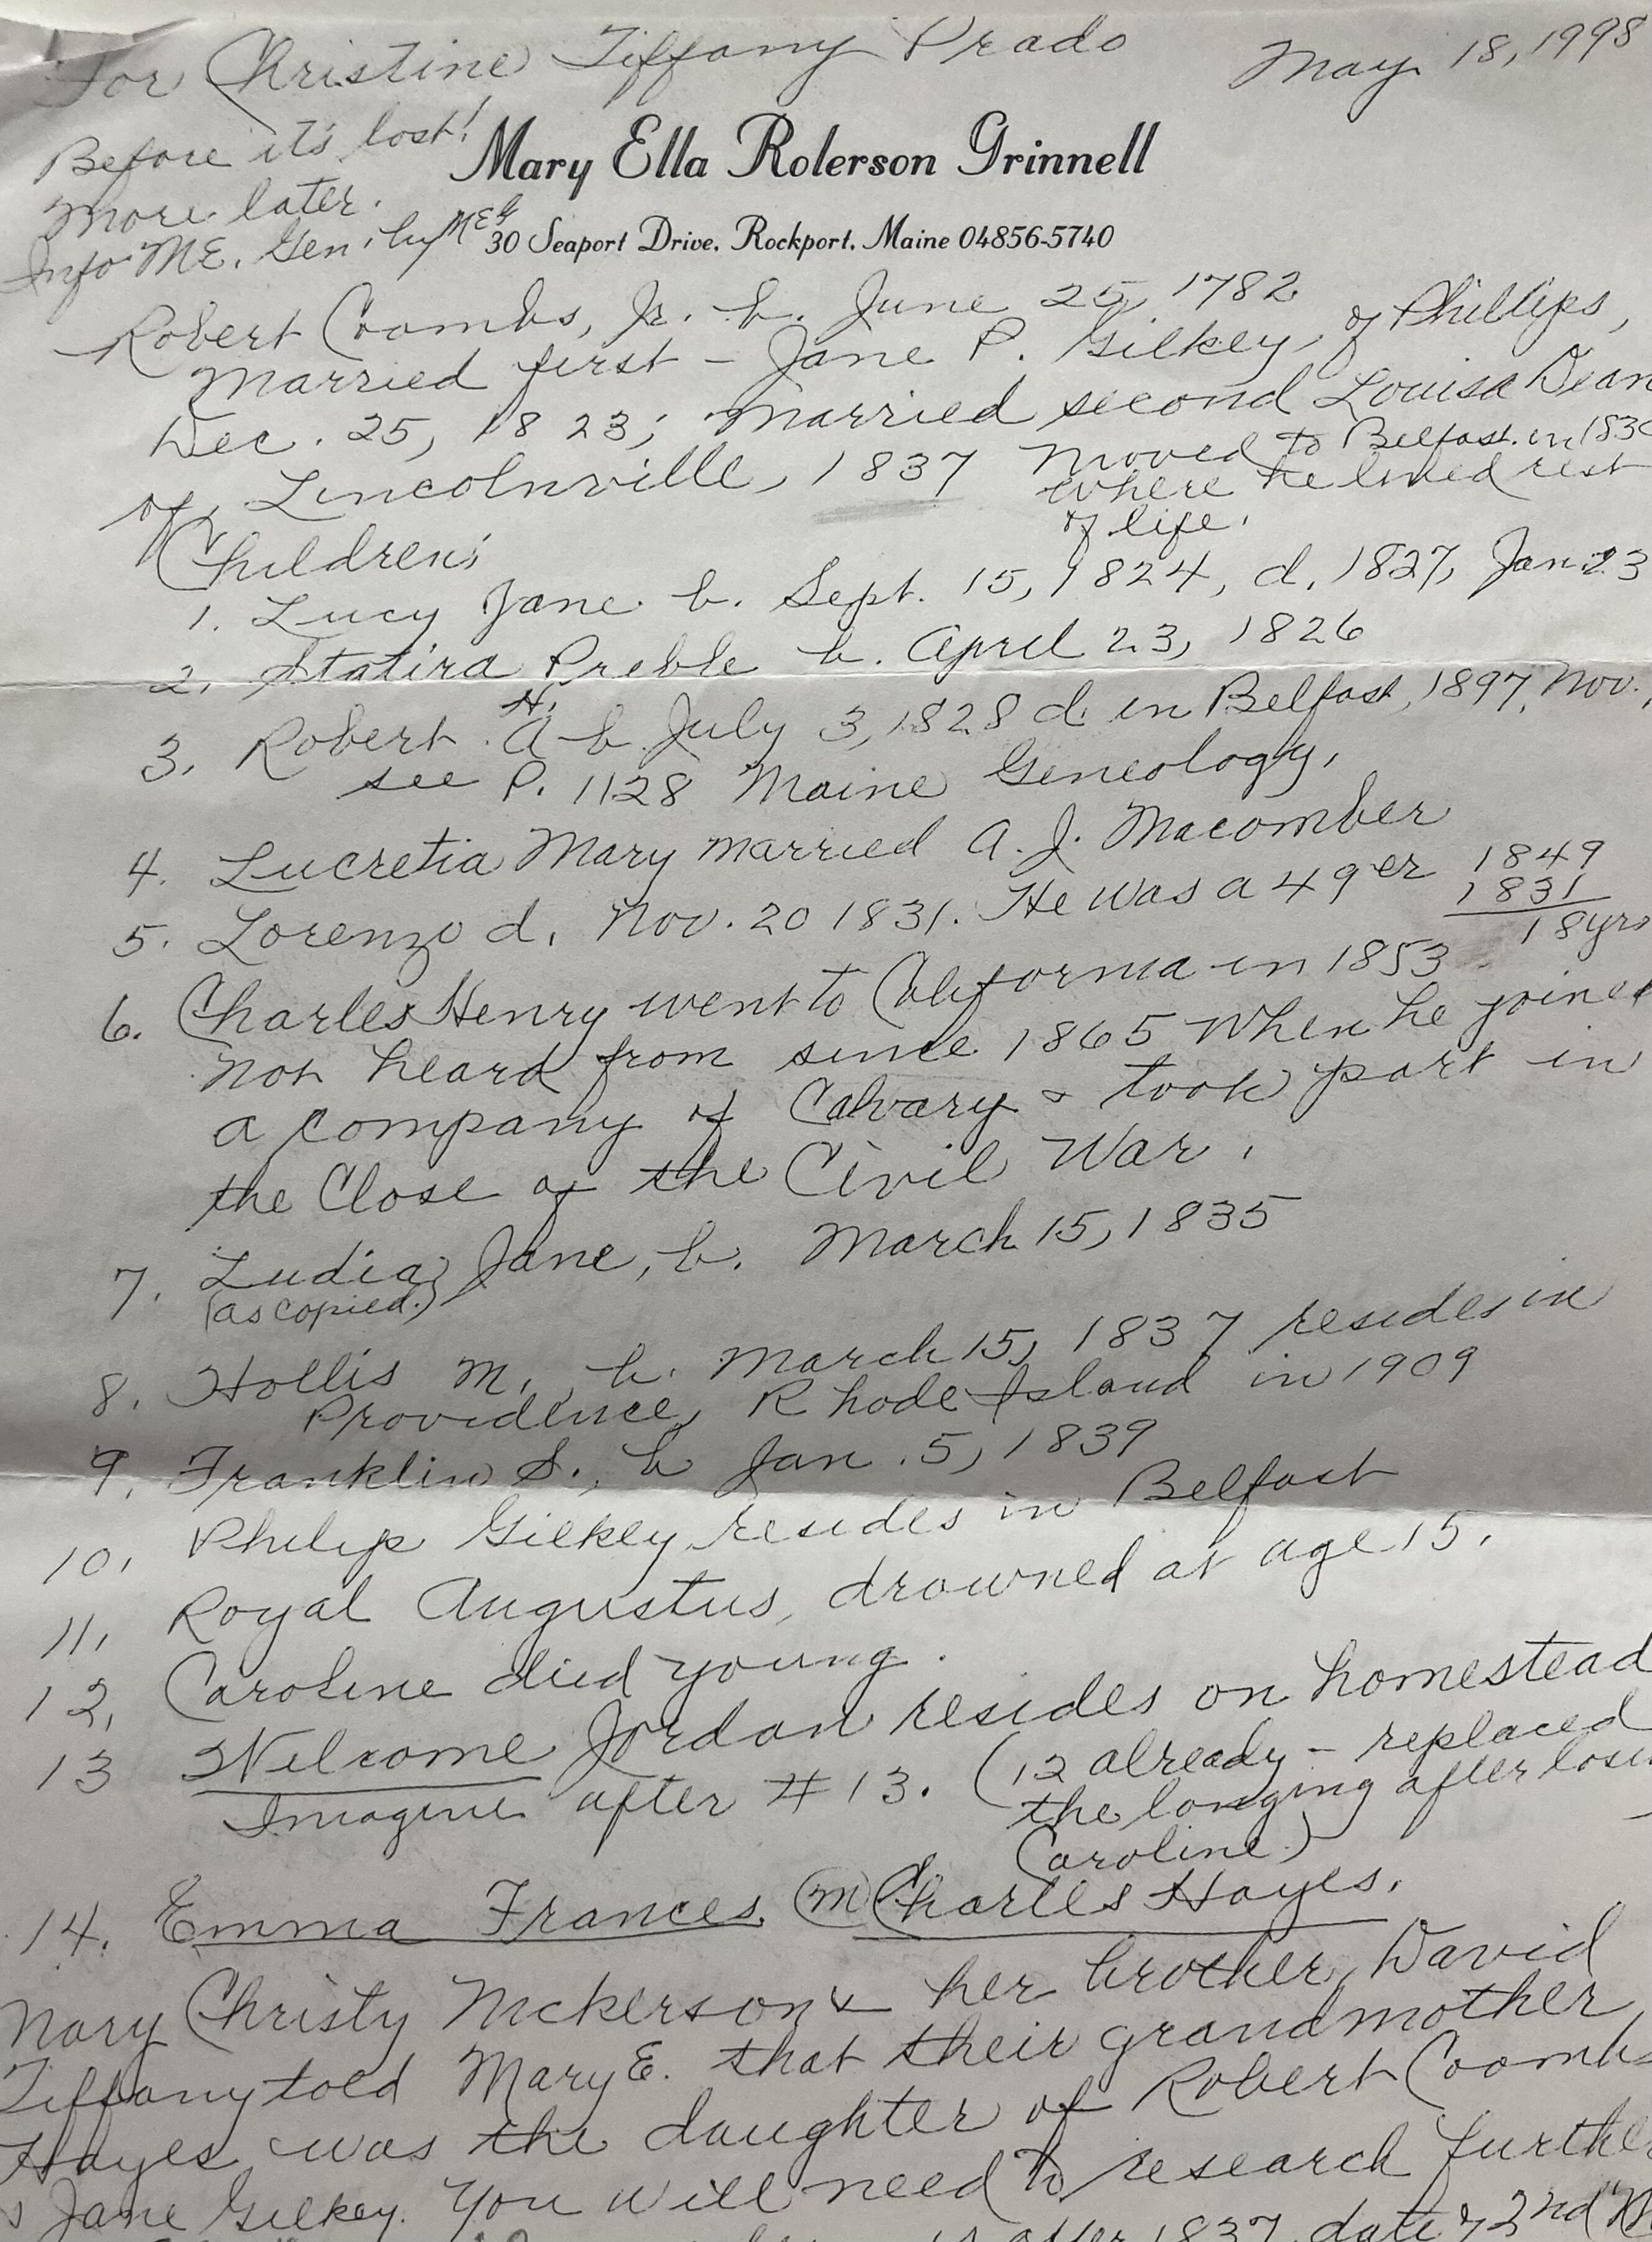 For Christine Tiffany Prado May 18, 1998
Before it's lost!
More later.
Info ME. Gen. by MEG
Mary Ella Rolerson Grinnell
30 Seaport Drive, Rockport, Maine 04856-5740
Robert Coombs, Jr. b. June 25, 1782
Married first - Jane P. Gilkey, of Phillips,
Dec. 25, 1823; Married second Louisa Dean
of Lincolnville, 1837 Moved to Belfast in 1830
where he lived rest
of life.
Children:
1. Lucy Jane b. Sept. 15, 1824, d. 1827, Jan. 23
2. Statira Preble b. April 23, 1826
3. Robert A b July 3, 1828 d. in Belfast, 1897, Nov.
H.
see P. 1128 Maine Geneology.
4. Lucretia Mary married A. J. Macomber
5. Lorenzo d. Nov. 20 1831. He was a 49er 1849
1831
18yrs
6. Charles Henry went to California in 1853
Not heard from since 1865 When he joined
a company of Calvary & took part in
the Close of the Civil War.
7. Ludia Jane, b. March 15, 1835
(as copied.)
8. Hollis M., b. March 15, 1837 resides in
Providence, Rhode Island in 1909
9. Franklin S., b Jan. 5, 1839
10. Philip Gilkey resides in Belfast
11. Royal Augustus, drowned at age 15.
12. Caroline died young.
13 Welcome Jordan resides on homestead
Imagine after # 13. (12 already - replaced
the longing after losin
Caroline.)
14. Emma Frances (m) Charles Hayes.
Mary Christy Nickerson & her brother, David
Tiffany told Mary E. that their grandmother
Hayes was the daughter of Robert Coombs
Jane Gilkey. You will need to research further
after 1837 date of 2nd